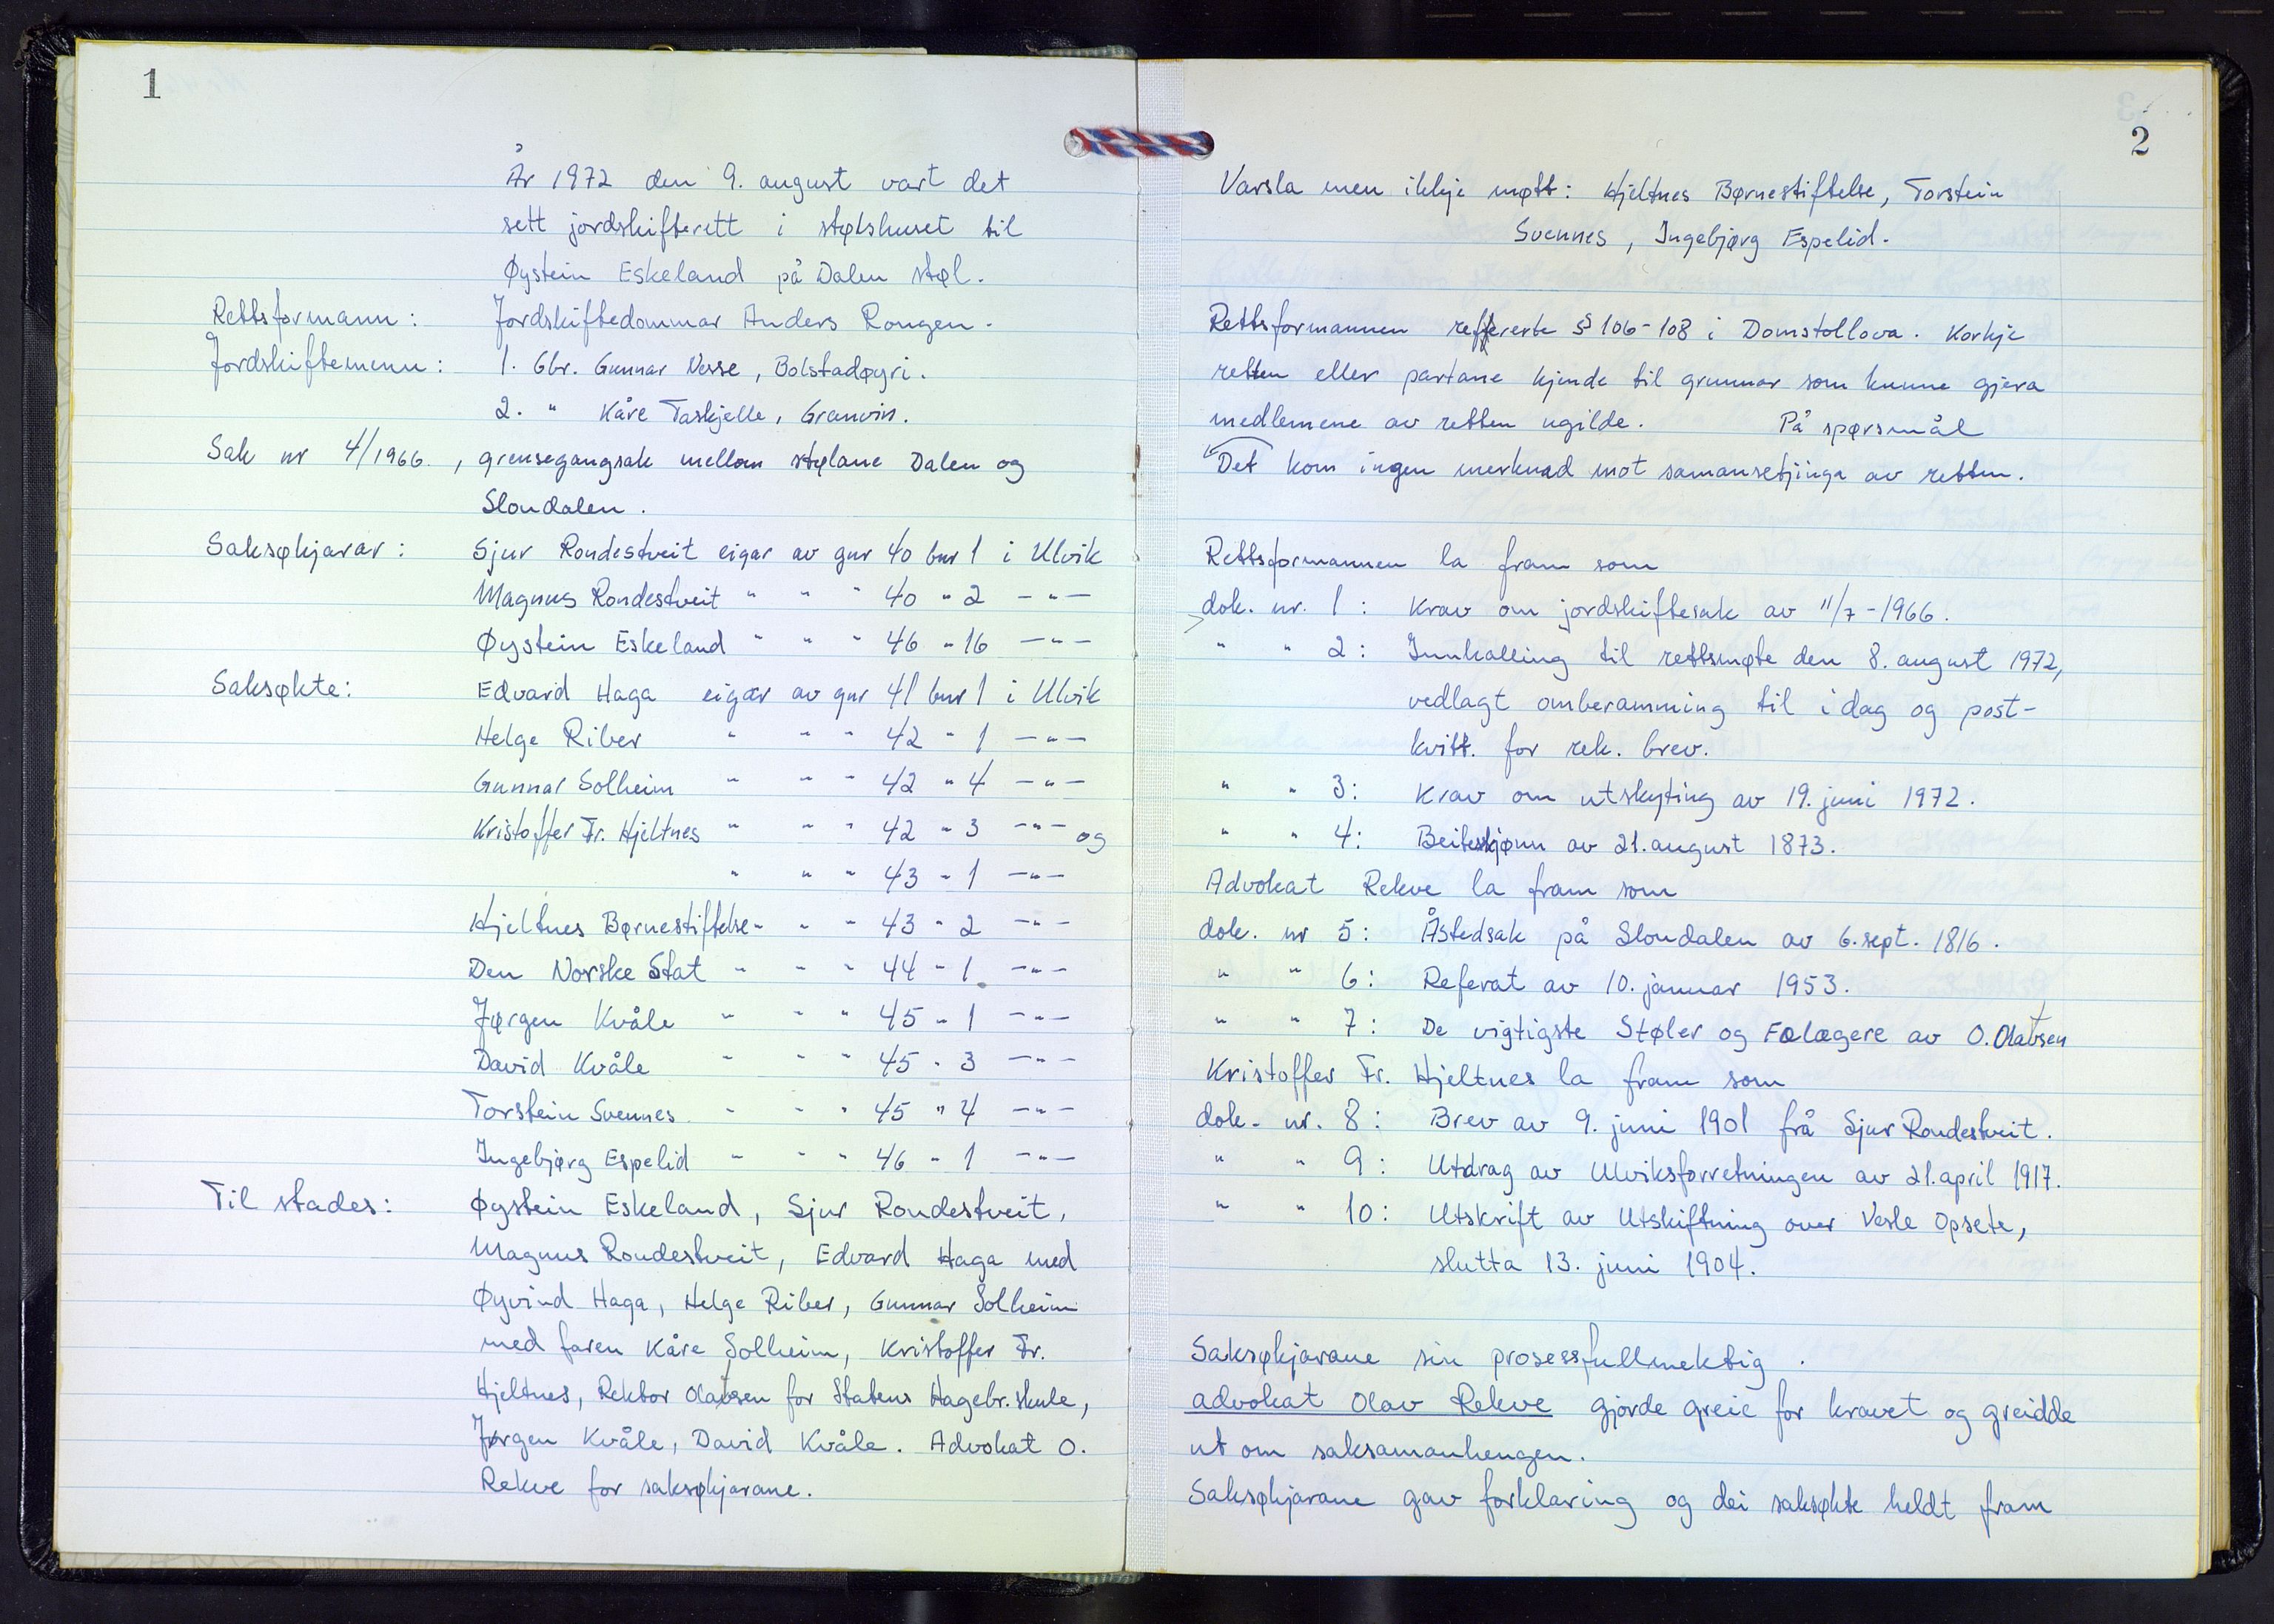 1
År 1972 den 9. august vart det
sett jordskifterett i stølshuset til
Øystein Eskeland på Dalen støl.
Rettsformann: Jordskiftedommar Anders Rongen.
Jordskiftemenn: 1. Gbr. Gunnar Nesse, Bolstadøyri.
2. " Kåre Taskjelle, Granvin.
Sak nr 4/1966, grensegangsak mellom stølane Dalen og
Slondalen.
Saksøkjarar: Sjur Rondestveit eigar av gnr 40 bnr 1 i Ulvik
Magnus Rondestveit " " " 40 " 2 —"—
Øystein Eskeland " " " 46 " 16 —"—
Saksøkte: Edvard Haga eigar av gnr 41 bnr 1 i Ulvik
Helge Riber " " " 42 " 1 —"—
Gunnar Solheim " " " 42 " 4 —"—
Kristoffer Fr. Hjeltnes " " " 42 " 3 —"— og
" " " 43 " 1 —"—
Hjeltnes Børnestiftelse " " " 43 " 2 —"—
Den Norske Stat " " " 44 " 1 —"—
Jørgen Kvåle " " " 45 " 1 —"—
David Kvåle " " " 45 " 3 —"—
Torstein Svennes " " " 45 " 4 —"—
Ingebjørg Espelid " " " 46 " 1 —"—
Til stades: Øystein Eskeland, Sjur Rondestveit,
Magnus Rondestveit, Edvard Haga med
Øyvind Haga, Helge Riber, Gunnar Solheim
med faren Kåre Solheim, Kristoffer Fr.
Hjeltnes, Rektor Olavsen for Statens Hagebr. skule,
Jørgen Kvåle, David Kvåle. Advokat O.
Rekve for saksøkjarane.
2
Varsla men ikkje møtt: Hjeltnes Børnestiftelse, Torstein
Svennes, Ingebjørg Espelid.
Rettsformannen refererte § 106-108 i Domstollova. Korkje
retten eller partane kjende til grunnar som kunne gjera
medlemene av retten ugilde. På spørsmål
Det kom ingen merknad mot samansetjinga av retten.
Rettsformannen la fram som
dok. nr. 1: Krav om jordskiftesak av 11/7-1966.
" " 2: Innkalling til rettsmøte den 8. august 1972,
vedlagt omberamming til i dag og post-
kvitt. for rek. brev.
" " 3: Krav om utskyting av 19. juni 1972.
" " 4: Beiteskjønn av 21. august 1873.
Advokat Rekve la fram som
dok. nr 5: Åstedsak på Slondalen av 6. sept. 1816.
" " 6: Referat av 10. januar 1953.
" " 7: De vigtigste Støler og Fælægere av O. Olafsen
Kristoffer Fr. Hjeltnes la fram som
dok. nr. 8: Brev av 9. juni 1901 frå Sjur Rondestveit.
" " 9: Utdrag av Ulviksforretningen av 21. april 1917.
" " 10: Utskrift av Utskiftning over Vesle Opsete,
slutta 13. juni 1904.
Saksøkjarane sin prosessfullmektig
advokat Olav Rekve gjorde greie for kravet og greidde
ut om saksamanhengen.
Saksøkjarane gav forklaring og dei saksøkte heldt fram